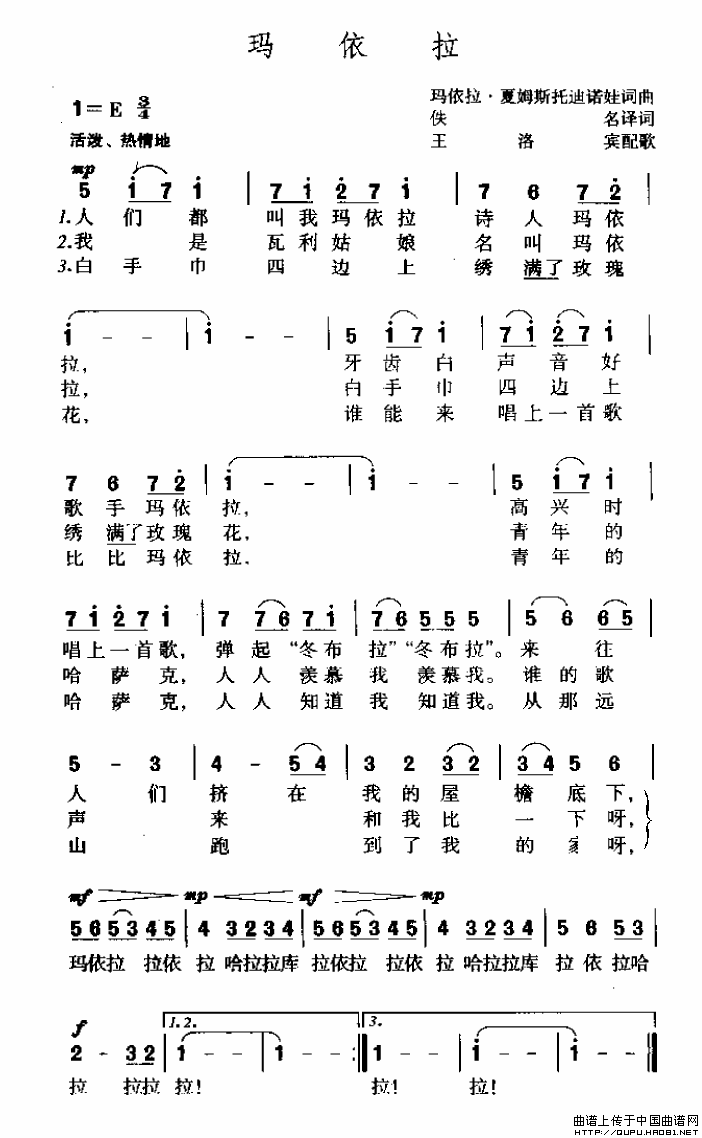 玛依拉
1=E 3/4
玛依拉·夏姆斯托迪诺娃词曲
佚名译词
活泼、热情地
王洛宾配歌
mp
5 i 7 i | 7 i 2 7 i | 7 6 7 2 |
1.人们都 叫我玛依拉 诗人玛依
2.我是 瓦利姑娘 名叫玛依
3.白手巾 四边上 绣满了玫瑰
i - - | i - - | 5 i 7 i | 7 i 2 7 i |
拉, 牙齿白 声音好
拉, 白手巾 四边上
花, 谁能来 唱上一首歌
7 6 7 2 | i - - | i - - | 5 i 7 i |
歌手玛依拉, 高兴时
绣满了玫瑰花, 青年的
比比玛依拉. 青年的
7 i 2 7 i | 7 7 6 7 i | 7 6 5 5 5 5 | 5 6 6 5 |
唱上一首歌, 弹起“冬布拉”“冬布拉”。来往
哈萨克, 人人羡慕我 羡慕我。谁的歌
哈萨克, 人人知道我 知道我。从那远
5 - 3 | 4 - 5 4 | 3 2 3 2 | 3 4 5 6 |
人们 挤在 我的屋檐底下,
声来 和我比一下呀,
山跑 到了我的家呀,
mf mp mf mp
5 6 5 3 4 5 | 4 3 2 3 4 | 5 6 5 3 4 5 | 4 3 2 3 4 | 5 6 5 3 |
玛依拉 拉依拉 哈拉拉库 拉依拉 拉依拉 哈拉拉库 拉依拉哈
f 1.2. 3.
2 - 3 2 | 1 - - | 1 - - :| 1 - - | 1 - - | 1 - - |
拉 拉拉 拉! 拉! 拉!
曲谱上传于中国曲谱网
HTTP://QUPU.HAO81.NET